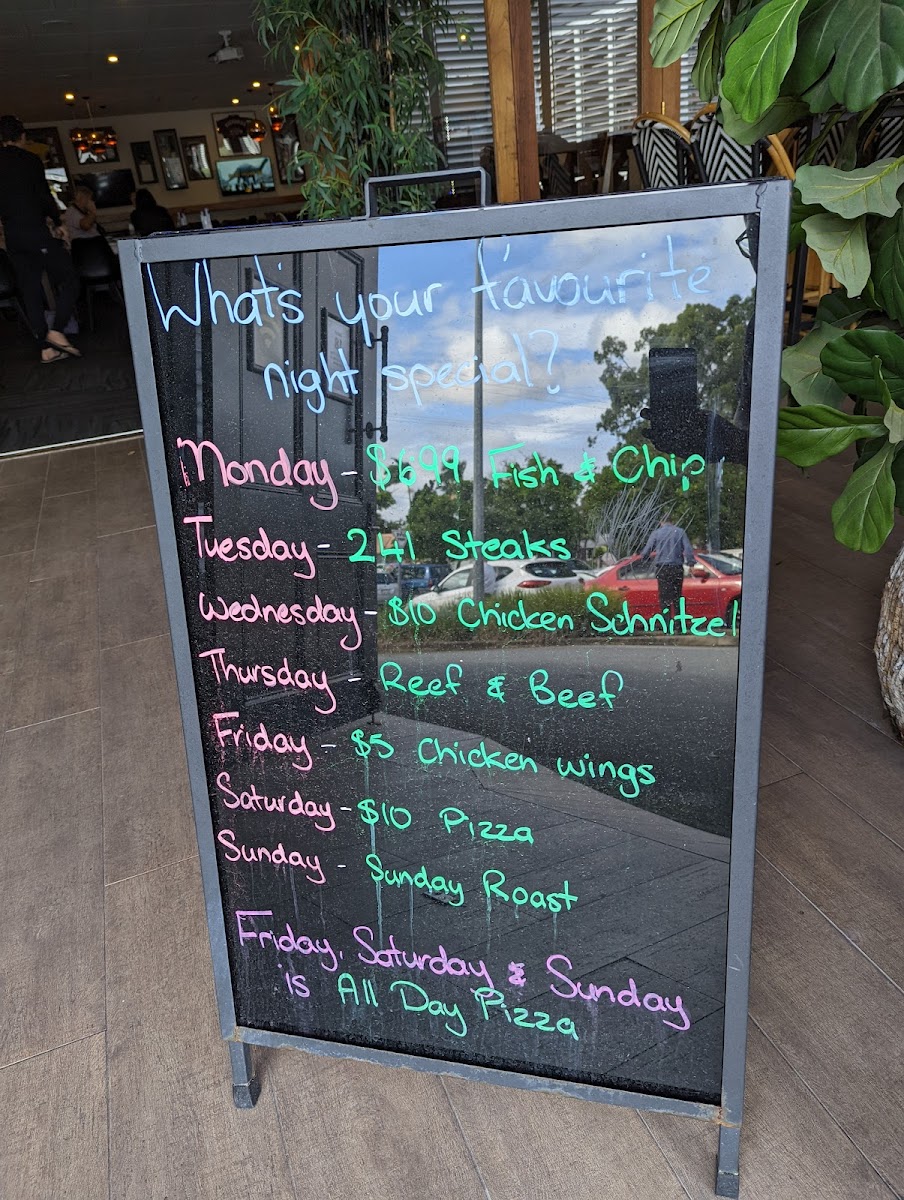 What's your favourite
night special?
Monday - $6.99 Fish & Chip
Tuesday - 241 Steaks
Wednesday - $10 Chicken Schnitzel
Thursday - Reef & Beef
Friday - $5 Chicken wings
Saturday - $10 Pizza
Sunday - Sunday Roast
Friday, Saturday & Sunday
is All Day Pizza